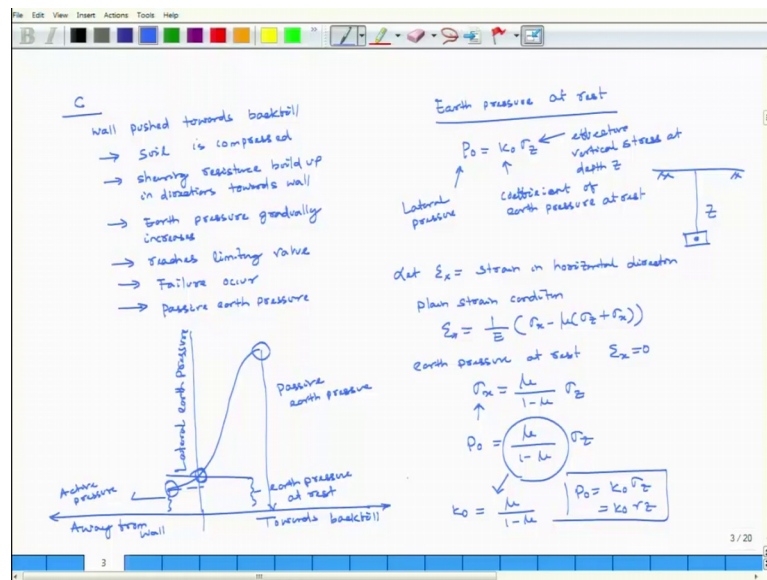 File Edit View Insert Actions Tools Help
B I
C
wall pushed towards backfill
→ Soil is compressed
→ shearing resistance build up
in directions towards wall
→ Earth pressure gradually
increases
→ reaches limiting value
→ Failure occur
→ passive earth pressure
Lateral earth pressure
Passive
earth pressure
Active
pressure
earth pressure
at rest
Away from
wall
Towards backfill
Earth pressure at rest
P₀ = k₀ σz ← effective
vertical stress at
depth Z
Lateral
pressure
coefficient of
earth pressure at rest
Z
Let Ɛx = strain in horizontal direction
plain strain condition
Ɛx = 1/E (σx - μ(σz + σx))
earth pressure at rest Ɛx = 0
σx = μ/(1-μ) σz
P₀ = μ/(1-μ) σz
k₀ = μ/(1-μ)
P₀ = k₀ σz
= k₀ γz
3 / 20
3